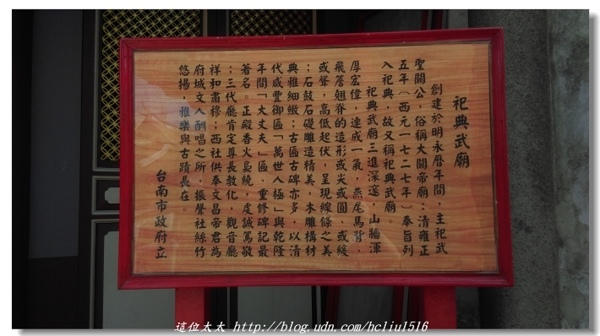 祀典武廟
創建於明永曆年間，主祀武
聖關公，俗稱大關帝廟，清雍正
五年（西元一七二七年），奉旨列
入祀典，故又稱祀典武廟。
祀典武廟三進深邃，山牆渾
厚宏偉，連成一氣，燕尾馬背，
飛簷翹脊的造形或尖或圓、或緩
或聳，高低起伏，呈現線條之美
；石鼓石礎雕造精美，木雕構材
典雅細緻；古匾古碑亦多，以清
代咸豐御匾「萬世人極」與乾隆
年間「大丈夫」匾、重修碑記最
著名。正殿香火鼎盛，虔誠篤敬
；三代廳肯定尊長教化，觀音廳
祥和肅穆；西社供奉文昌帝君為
府城文人酬唱之所，振聲社絲竹
悠揚，雅樂與古蹟長在。
台南市政府立
這位太太 http://blog.udn.com/hcliu1516